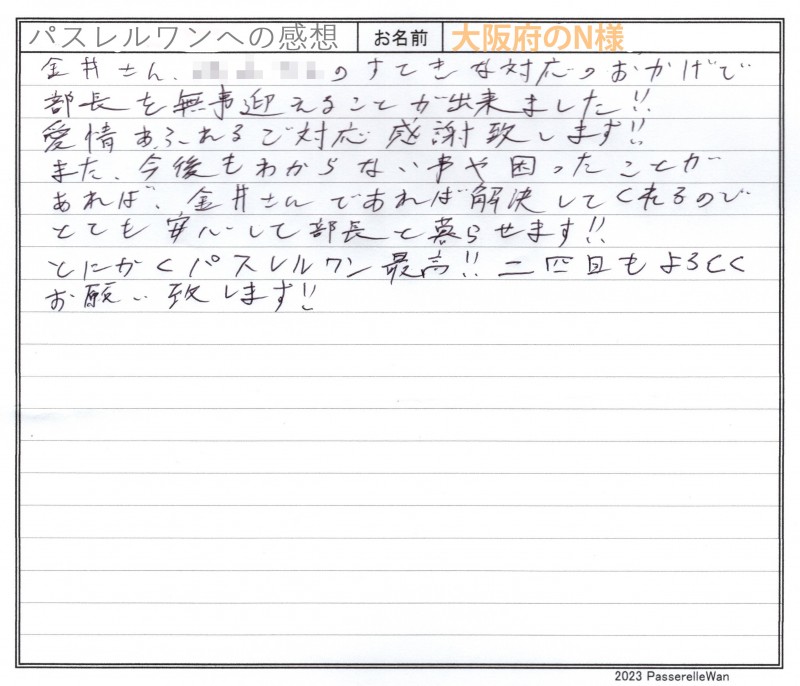 パスレルワンへの感想 お名前 大阪府のN様
金井さん、のすてきな対応のおかげで
部長を無事迎えることが出来ました!!
愛情あふれるご対応感謝致します!!
また、今後もわからない事や困ったことが
あれば、金井さんであれば解決してくれるので
とても安心して部長と暮らせます!!
とにかくパスレルワン最高!!二匹目もよろしく
お願い致します!!
2023 PasserelleWan